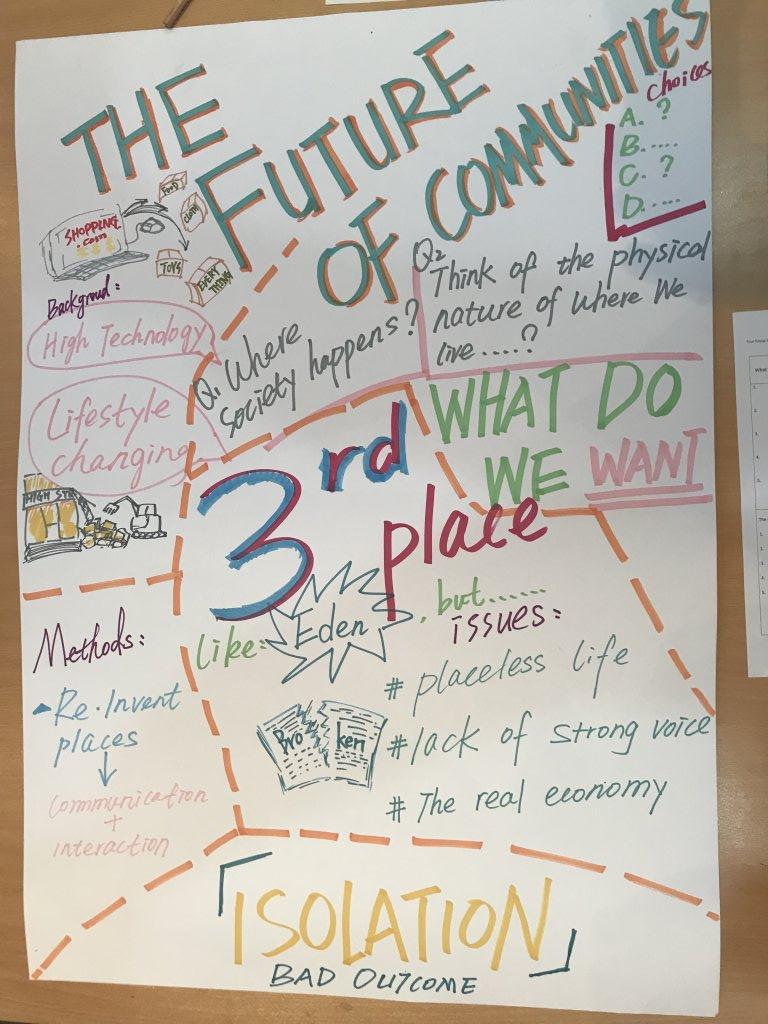 THE
FUTURE
OF COMMUNITIES
choices
A. ?
B. ....
C. ?
D. ....
SHOPPING
.com
FOOD
CLOTH
TOYS
EVERY
THING
Backgroud:
High Technology
Lifestyle
changing
HIGH STR
Q1. Where
society happens?
Q2
Think of the physical
nature of where We
live.....?
WHAT DO
WE WANT
3rd
place
like: Eden, but......
issues:
# placeless life
# lack of strong voice
# The real economy
Bro ken
Methods:
Re-Invent
places
↓
Communication
+
interaction
「ISOLATION」
BAD OUTCOME